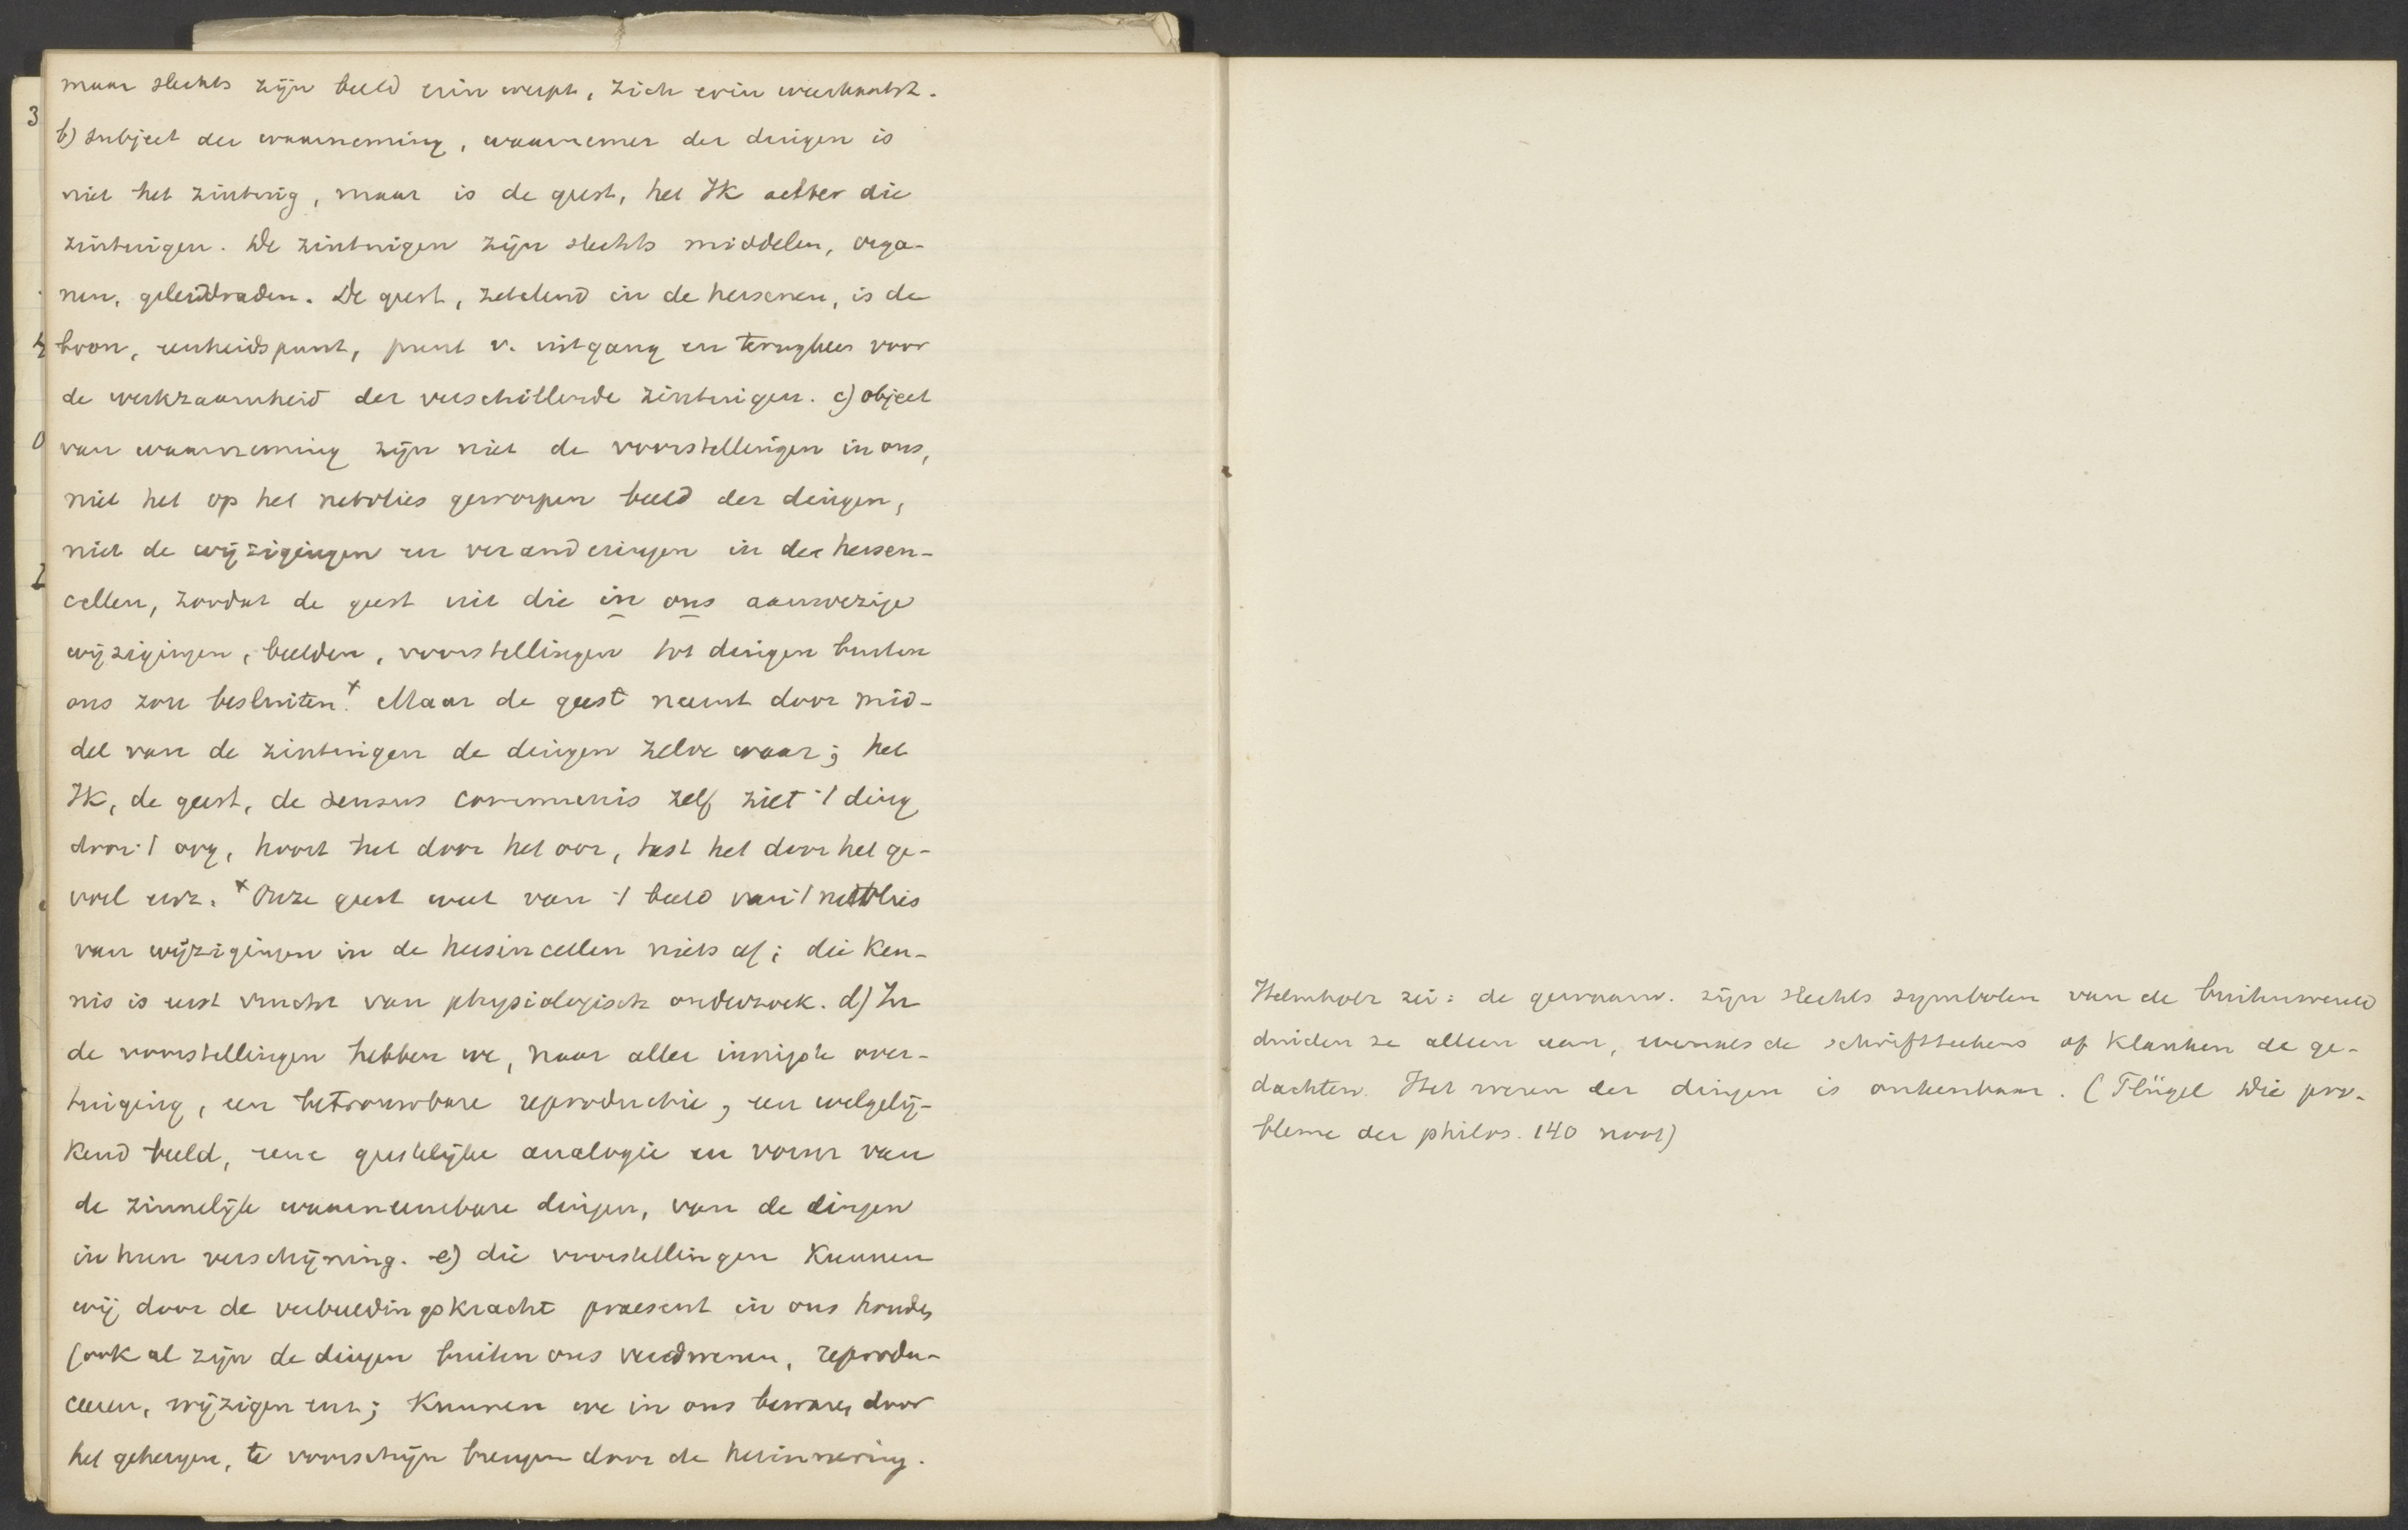 maar slechts zijn beeld erin werpt, zich erin weerkaatst.
b) subject der waarneming, waarnemer der dingen is
niet het zintuig, maar is de geest, het Ik achter die
zintuigen. De zintuigen zijn slechts middelen, orga-
nen, geleiddraden. De geest, zetelend in de hersenen, is de
bron, eenheidspunt, punt v. uitgang en terugkeer voor
de werkzaamheid der verschillende zintuigen. c) object
van waarneming zijn niet de voorstellingen in ons,
niet het op het netvlies geworpen beeld der dingen,
niet de wijzigingen en veranderingen in de hersen-
cellen, zoodat de geest uit die in ons aanwezige
wijzigingen, beelden, voorstellingen tot dingen buiten
ons zou besluiten.x Maar de geest neemt door mid-
del van de zintuigen de dingen zelve waar; het
Ik, de geest, de sensus communis zelf ziet 't ding
door 't oog, hoort het door het oor, tast het door het ge-
voel enz. x Onze geest weet van 't beeld van 't netvlies
van wijzigingen in de hersencellen niets af; die ken-
nis is eerst vrucht van physiologisch onderzoek. d) In
de voorstellingen hebben we, naar aller innigste over-
tuiging, een betrouwbare reproductie, een welgelij-
kend beeld, eene geestelijke analogie en vorm van
de zinnelijke waarneembare dingen, van de dingen
in hun verschijning. e) die voorstellingen kunnen
wij door de verbeeldingskracht praesent in ons houden
(ook al zijn de dingen buiten ons verdwenen, reprodu-
ceeren, wijzigen enz; kunnen we in ons bewaren door
het geheugen, te voorschijn brengen door de herinnering.
3
0
Helmholz zei: de gewaarw. zijn slechts symbolen van de buitenwereld
duiden ze alleen aan, evenals de schriftteekens of klanken de ge-
dachten. Het wezen der dingen is onkenbaar. (Flügel Die pro-
bleme der philos. 140 noot)